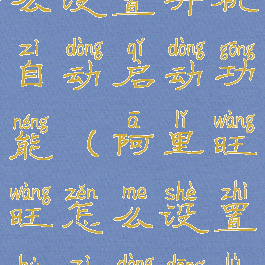 么设置开机
zì dòng qǐ dòng gōng
自动启动功
néng ā lǐ wàng
能（阿里旺
wàng zěn me shè zhì
旺怎么设置